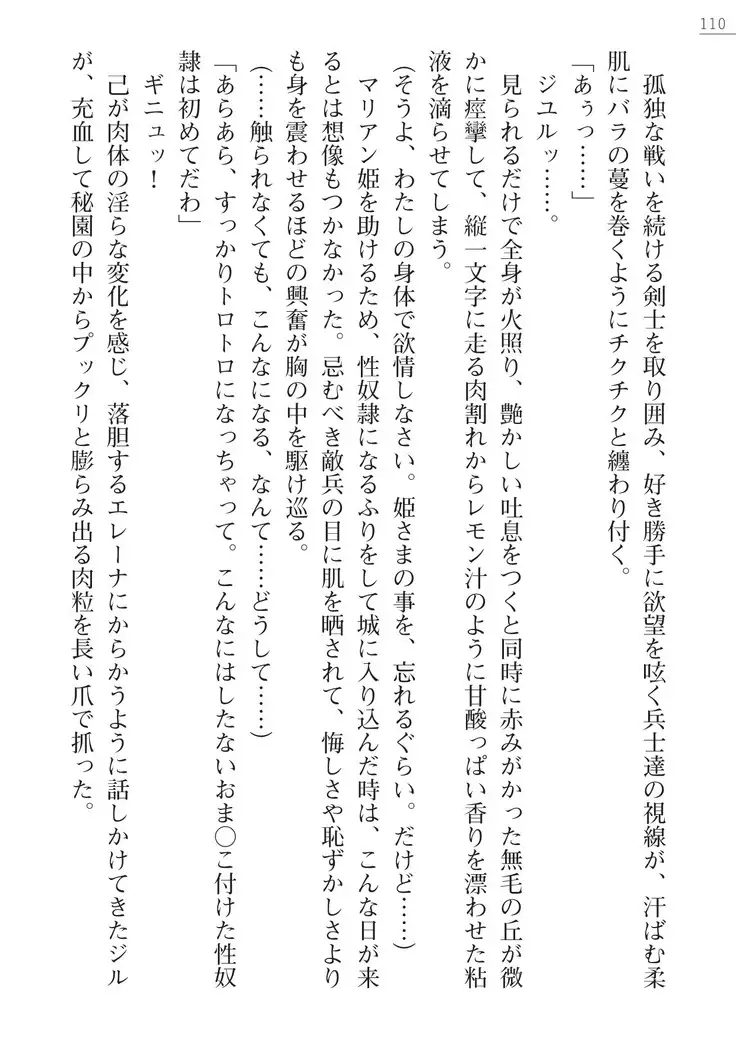 110
孤独な戦いを続ける剣士を取り囲み、好き勝手に欲望を呟く兵士達の視線が、汗ばむ柔
肌にバラの蔓を巻くようにチクチクと纏わり付く。
「あぅっ……」
ジユルッ……。
見られるだけで全身が火照り、艶かしい吐息をつくと同時に赤みがかった無毛の丘が微
かに痙攣して、縦一文字に走る肉割れからレモン汁のように甘酸っぱい香りを漂わせた粘
液を滴らせてしまう。
(そうよ、わたしの身体で欲情しなさい。姫さまの事を、忘れるぐらい。だけど……)
マリアン姫を助けるため、性奴隷になるふりをして城に入り込んだ時は、こんな日が来
るとは想像もつかなかった。忌むべき敵兵の目に肌を晒されて、悔しさや恥ずかしさより
も身を震わせるほどの興奮が胸の中を駆け巡る。
(……触られなくても、こんなになる、なんて……どうして……)
「あらあら、すっかりトロトロになっちゃって。こんなにはしたないおま◯こ付けた性奴
隷は初めてだわ」
ギニュッ！
己が肉体の淫らな変化を感じ、落胆するエレーナにからかうように話しかけてきたジル
が、充血して秘園の中からプックリと膨らみ出る肉粒を長い爪で抓った。